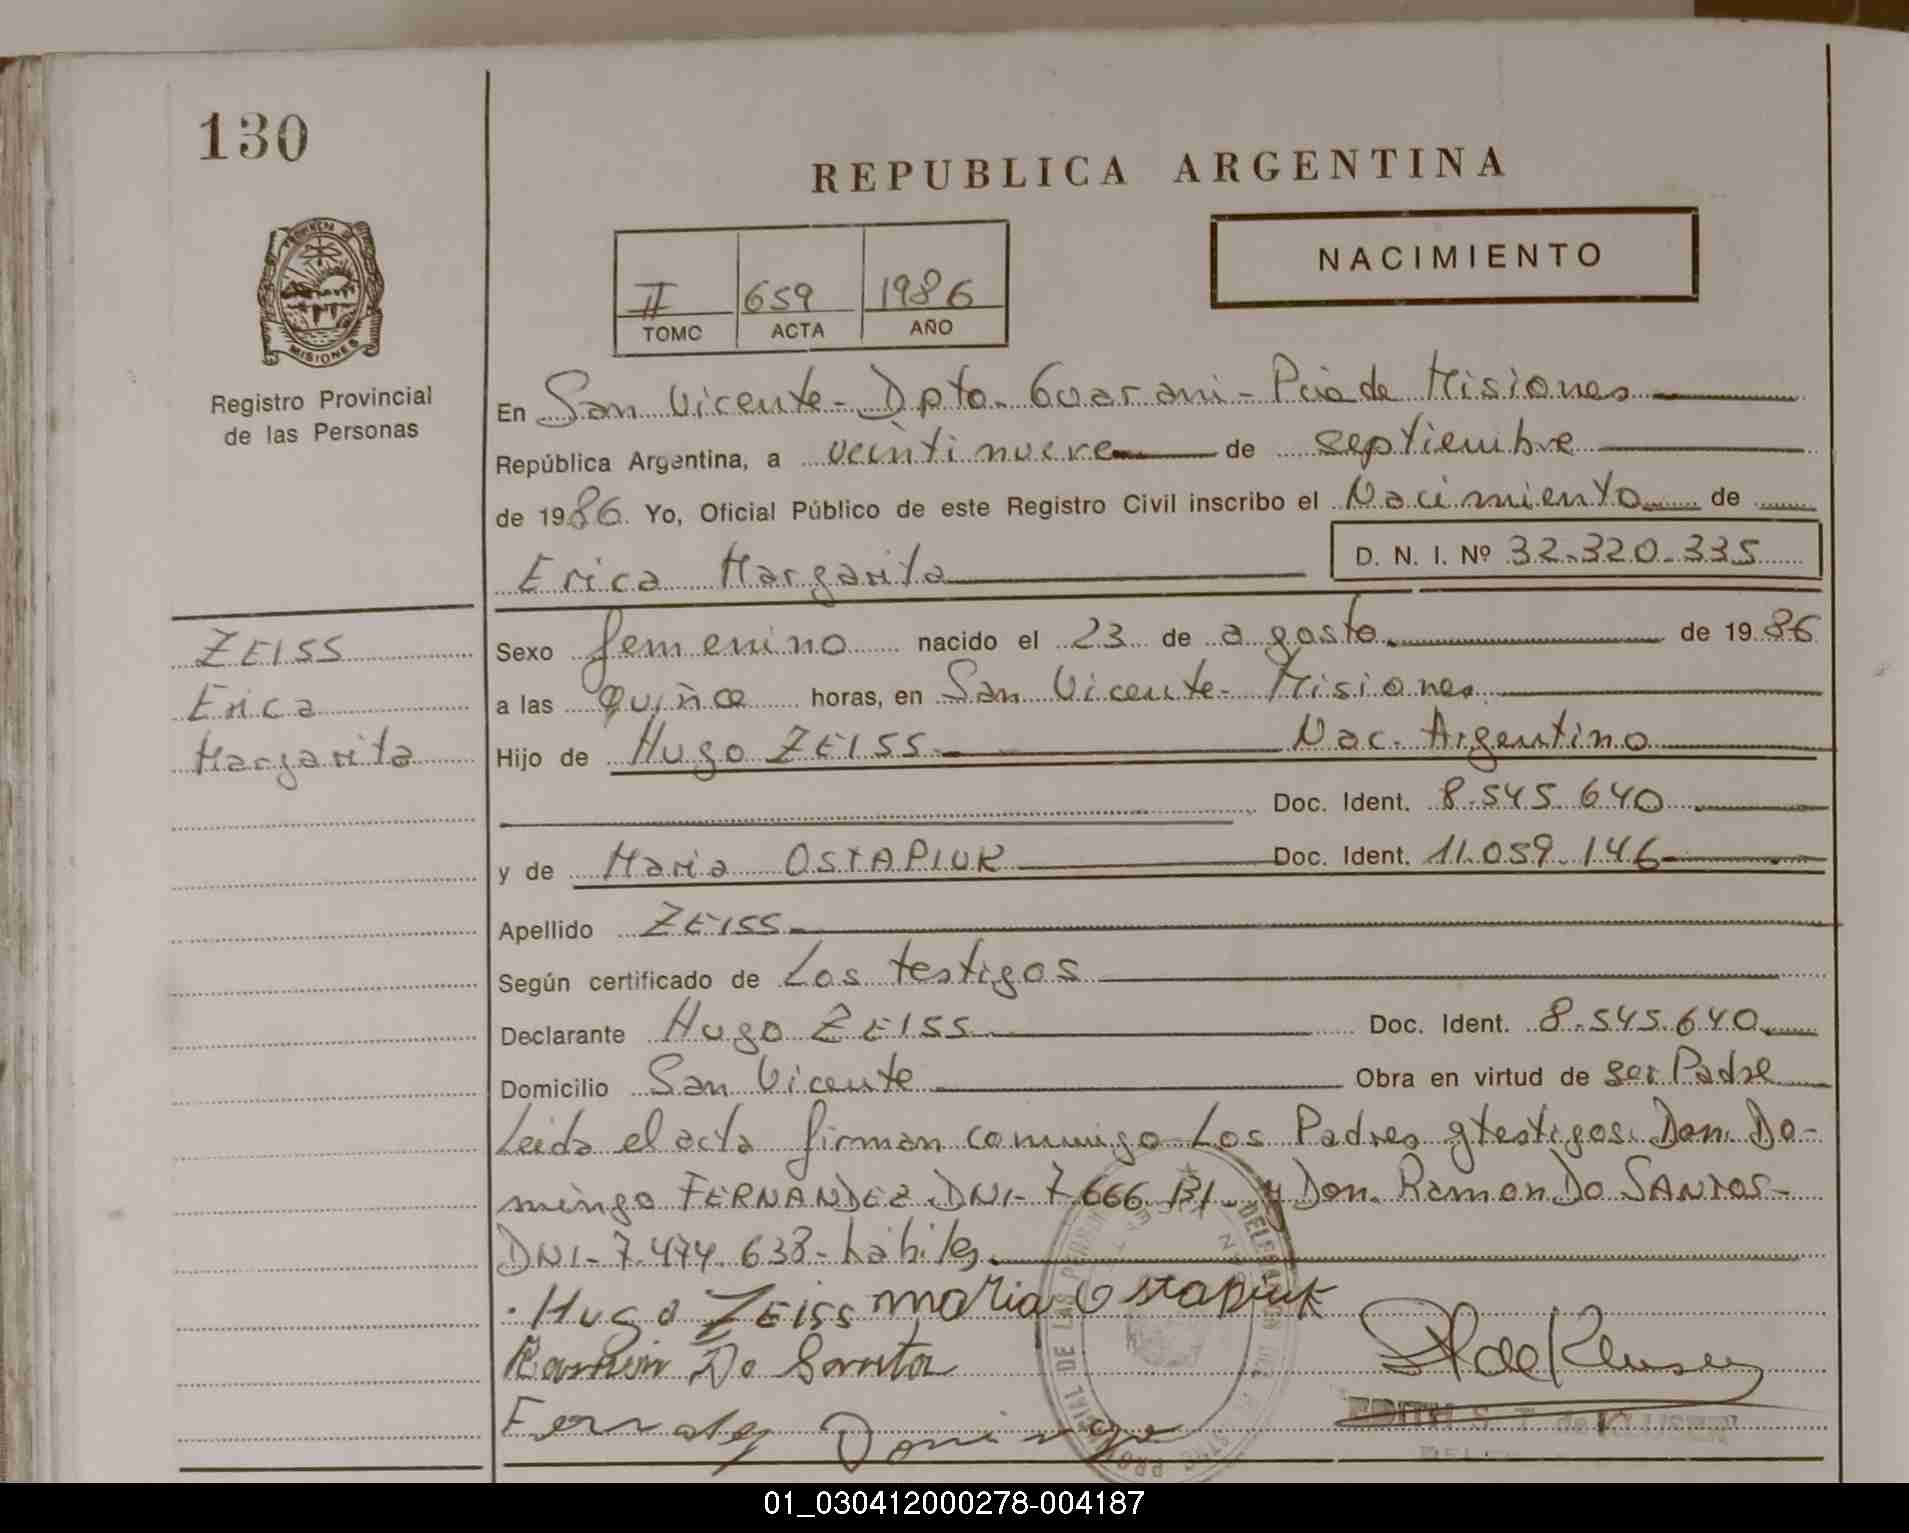 130
REPUBLICA ARGENTINA
NACIMIENTO
II 659 1986
TOMO ACTA AÑO
PROVINCIA DE
MISIONES
Registro Provincial
de las Personas
En San Vicente - Dpto. Guarani - Pcia de Misiones
República Argentina, a veintinueve de septiembre
de 1986. Yo, Oficial Público de este Registro Civil inscribo el Nacimiento de
Erica Margarita D. N. I. Nº 32.320.335
ZEISS
Erica
Margarita
Sexo femenino nacido el 23 de agosto de 1986
a las quince horas, en San Vicente - Misiones
Hijo de Hugo ZEISS Nac. Argentino
Doc. Ident. 8.545.640
y de Maria OSTAPIUK Doc. Ident. 11.059.146
Apellido ZEISS
Según certificado de Los testigos
Declarante Hugo ZEISS Doc. Ident. 8.545.640
Domicilio San Vicente Obra en virtud de ser Padre
Leida el acta firman conmigo Los Padres y testigos. Don. Do-
mingo FERNANDEZ DNI- 7.666.131 - y Don. Ramon Do SANTOS -
DNI- 7.474.638 - hábiles.
Hugo ZEISS Maria Ostapiuk
Ramon Do Santos
Fernandez Domingo
EDITH S. T. de
01_030412000278-004187